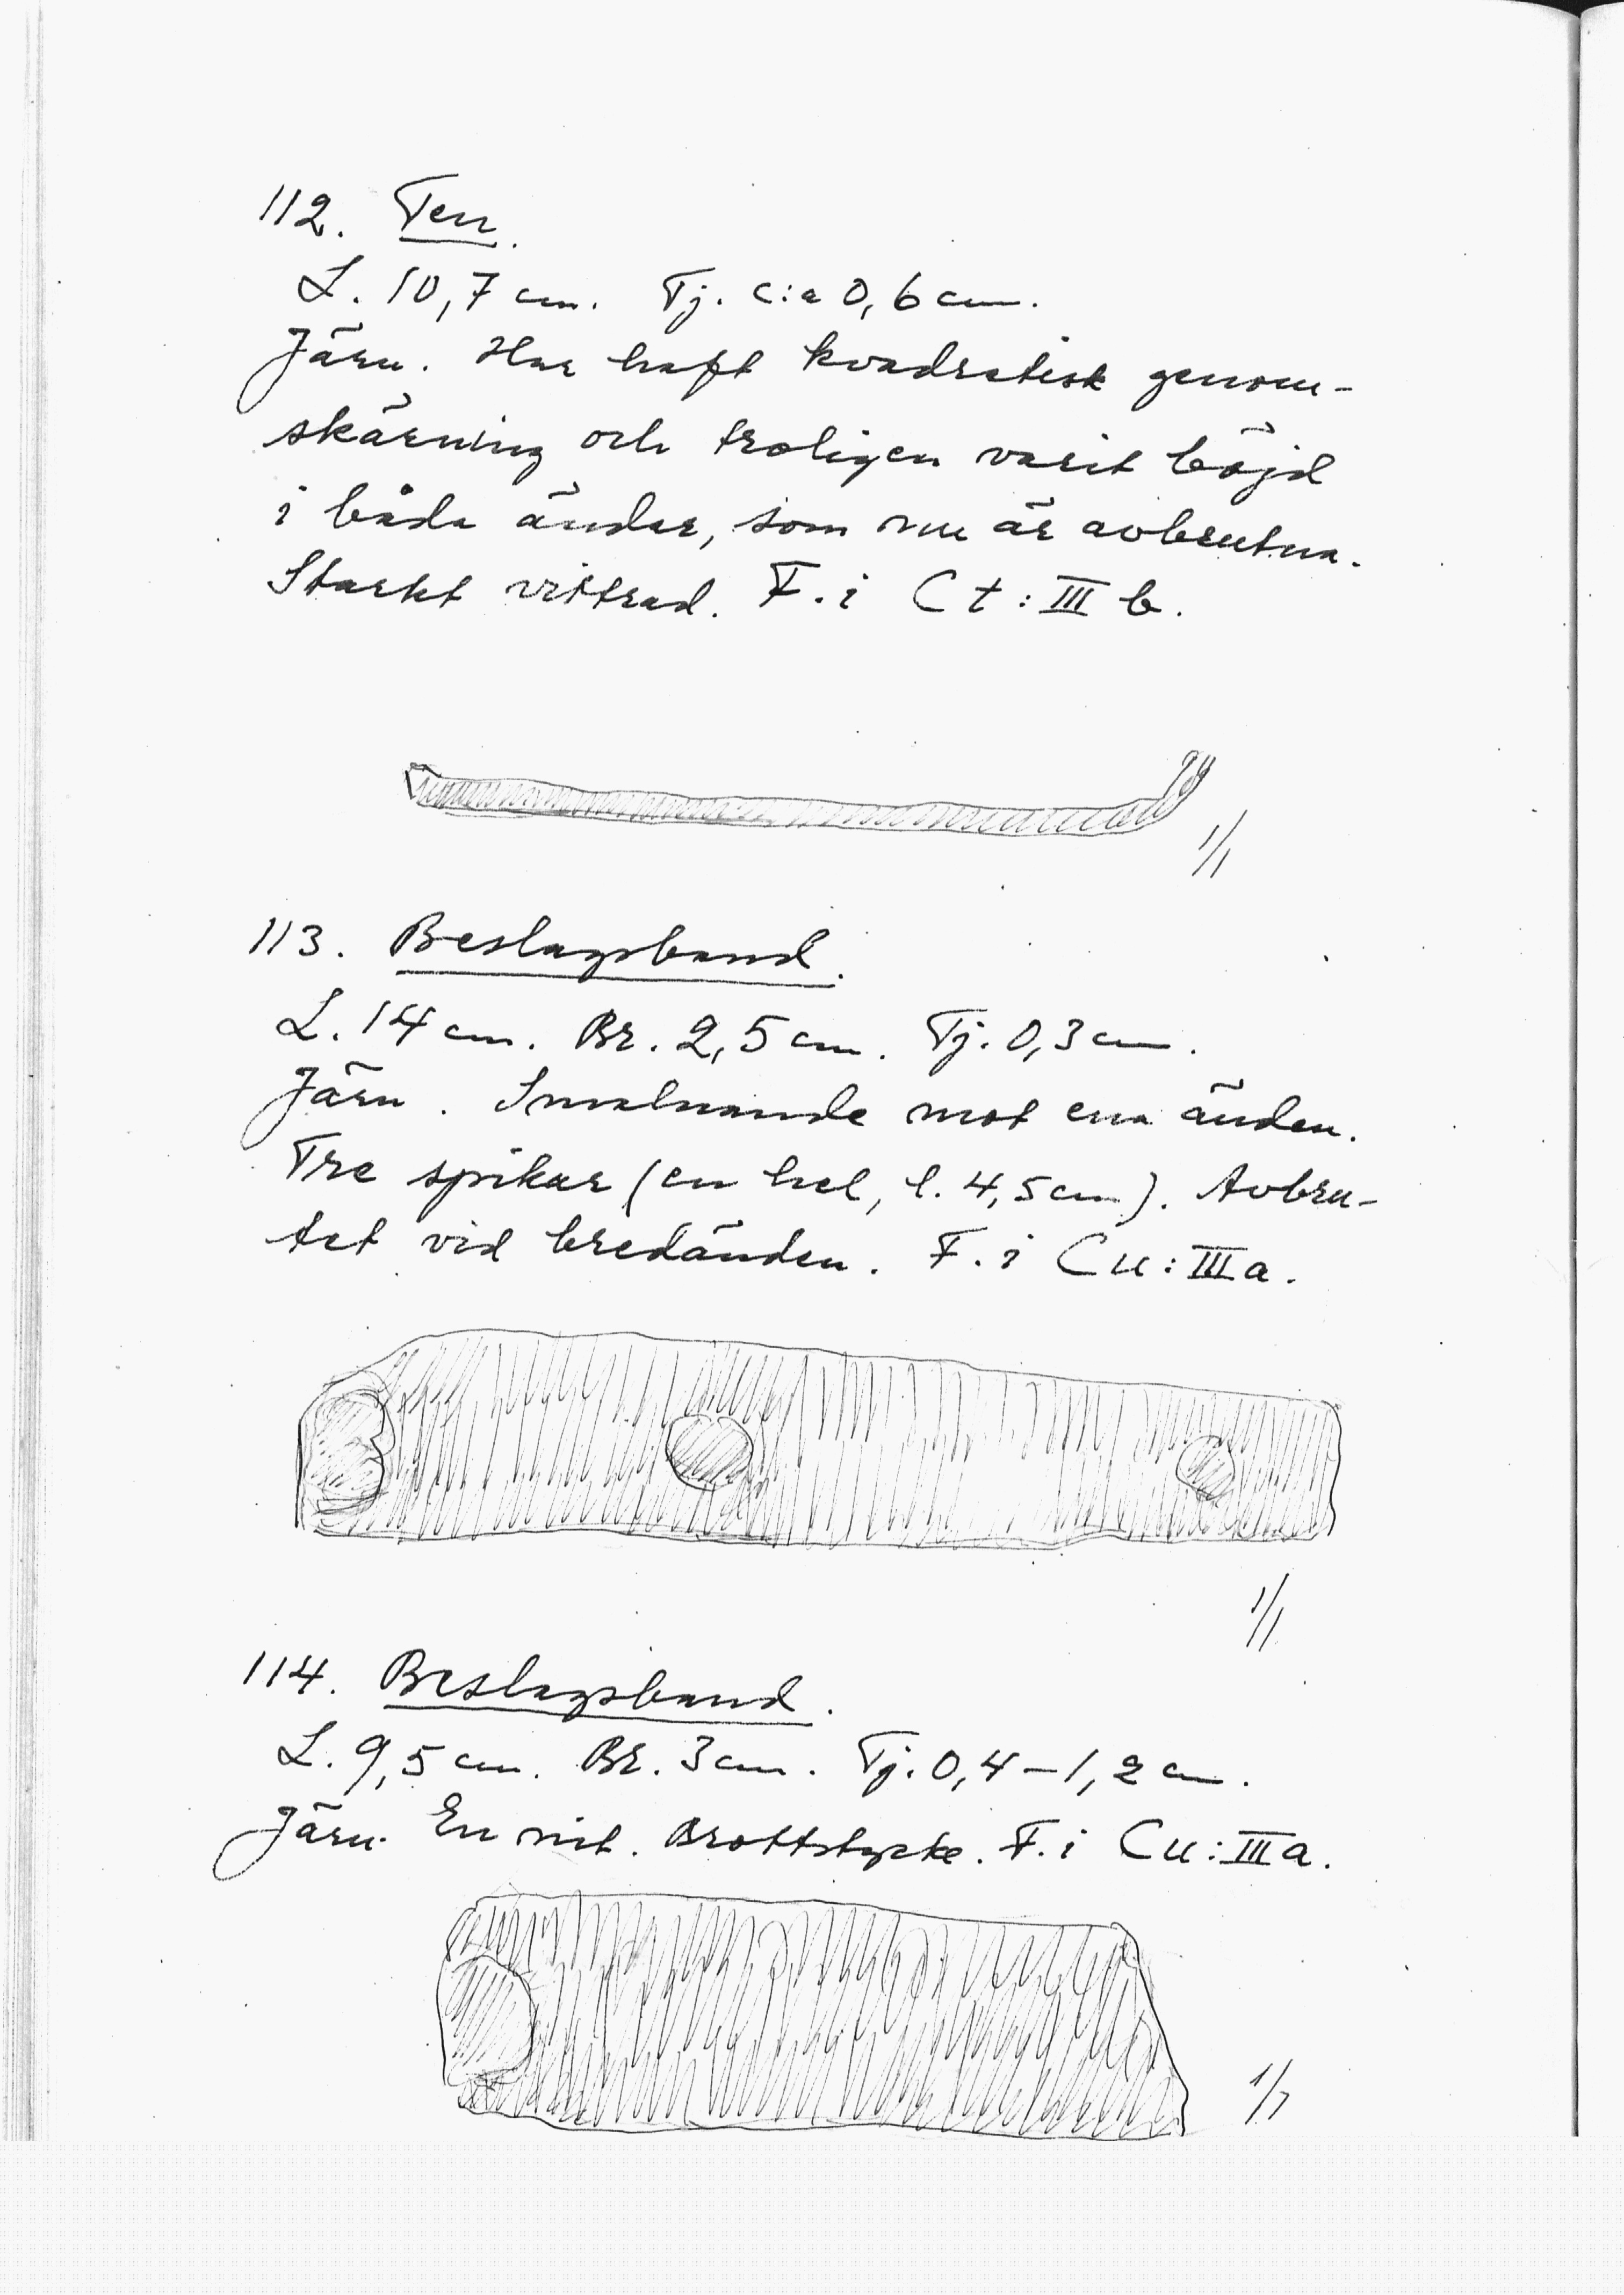 112. Ten.
L. 10,7 cm. Tj. c:a 0,6 cm.
Järn. Har haft kvadratisk genom-
skärning och troligen varit böjd
i båda ändar, som nu är avbrutna.
Starkt vittrad. F. i Ct: III b.
1/1
113. Beslagsband.
L. 14 cm. Br. 2,5 cm. Tj. 0,3 cm.
Järn. Smalnande mot ena änden.
Tre spikar (en hel, l. 4,5 cm). Avbru-
tet vid bredänden. F. i Cu: III a.
1/1
114. Beslagsband.
L. 9,5 cm. Br. 3 cm. Tj. 0,4 – 1,2 cm.
Järn. En nit. Brottstycke. F. i Cu: III a.
1/1